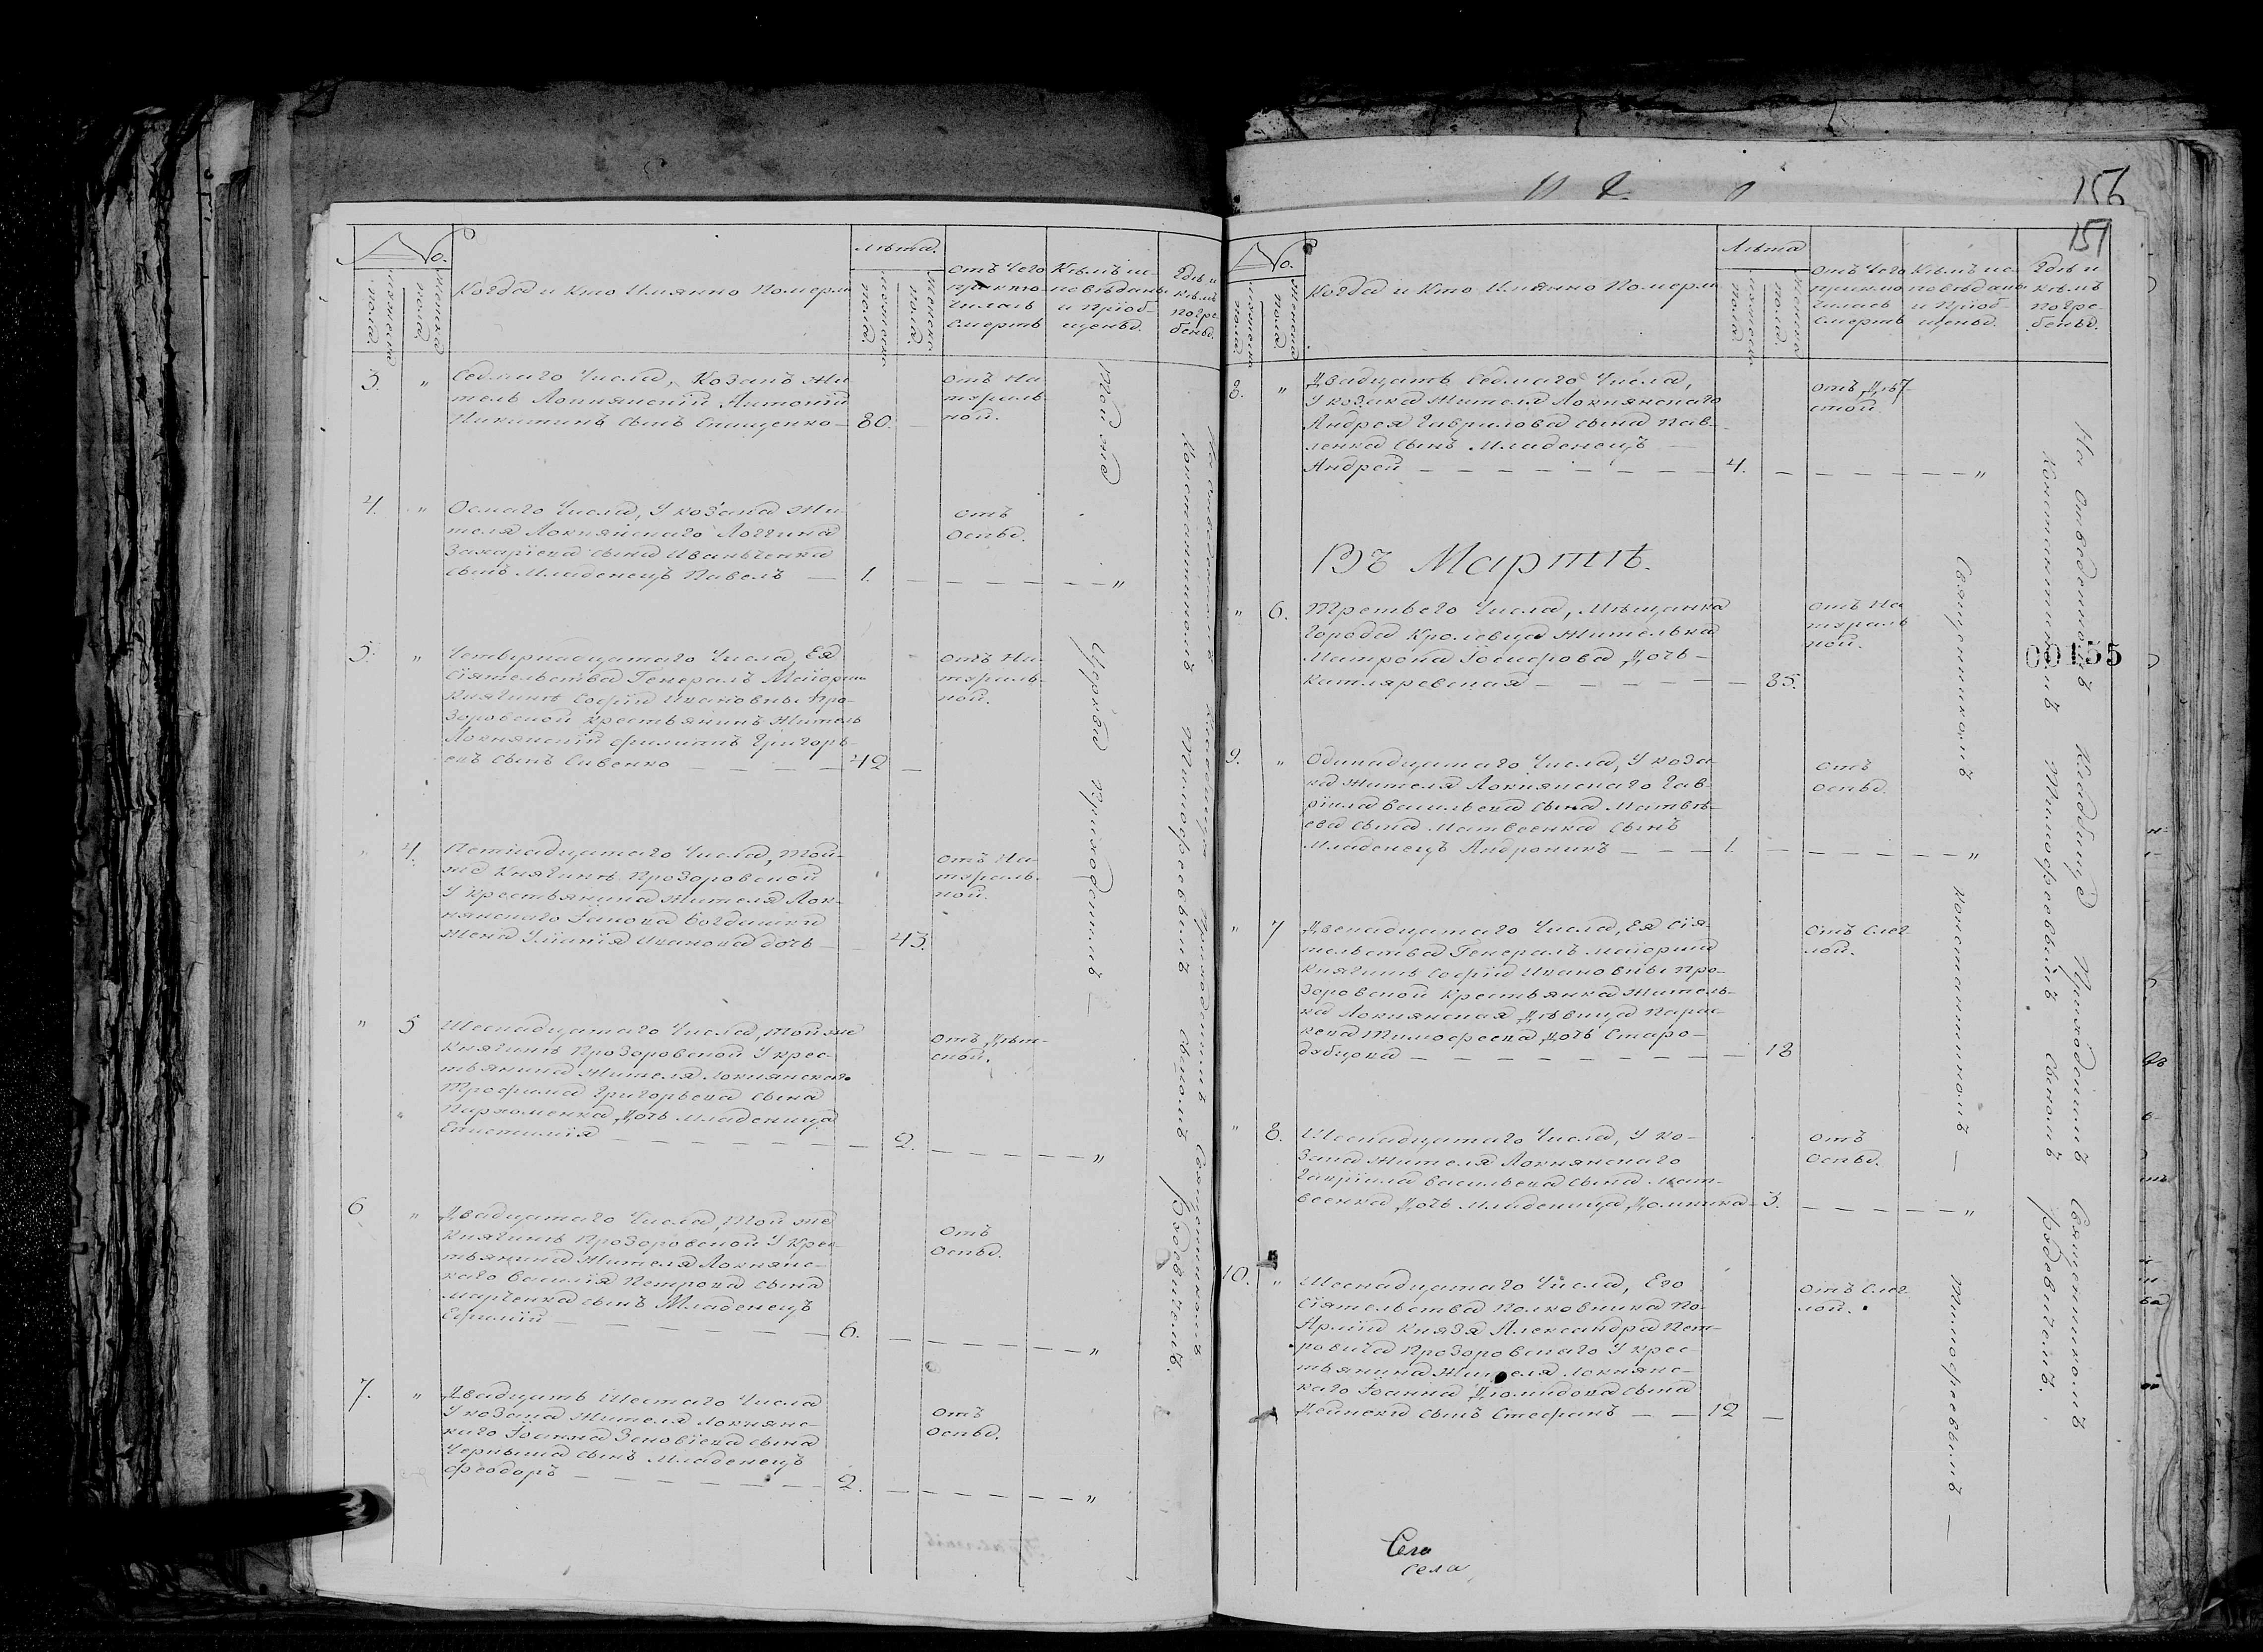 No.
мужеска пола.
женска пола.
Когда и Кто Имянно Померли
Лѣта.
мужеска пола.
женска пола.
отъ Чего
приклю-
чилась
Смерть
Кѣмъ ис-
повѣданы
и Пріоб-
щены.
Гдѣ и
кѣмъ
погре-
бены.
3. "
Седмаго Числа, Козакъ Жи-
тель Локнянскій Антоній
Никитинъ Сынъ Спищенко — 80. —
отъ На
тураль
ной.
4. "
Осмаго Числа, У козака Жи-
теля Локнянскаго Логгина
Захаріева сына Иванченка
сынъ Младенецъ Павелъ — 1. — — — — — "
отъ
Оспы.
5. "
Четырнадцатаго Числа, Ея
Сіятельства Генералъ Маіорши
Княгинѣ Софіи Ивановны Про-
зоровской крестьянинъ Житель
Локнянскій Филиппъ Григорь-
евъ сынъ Сивенко — — — — 42 —
отъ На-
тураль-
ной.
" 4.
Петнадцатаго Числа, Той-
же Княгинѣ Прозоровской
У крестьянина Жителя Лок-
нянскаго Іакова Богдашки
Жена Уліянія Иванова дочь — 43.
отъ На-
тураль-
ной.
" 5
Шеснадцатаго Числа, Той же
Княгинѣ Прозоровской У крес-
тьянина Жителя Локнянскаго
Трофима Григорьева Сына
Пархоменка Дочь Младеница
Епистимія — — — — — — 2. — — — — — "
отъ Дѣт-
ской.
6 "
Двадцатаго Числа, Той же
Княгинѣ Прозоровской У Крес-
тьянина Жителя Локнянс-
каго Василія Петрова сына
Марченка сынъ Младенецъ
Ефимій — — — — — — 6. — — — — — "
отъ
Оспы.
7. "
Двадцать Шестаго Числа
У козака Жителя Локнянс-
каго Іоанна Зеновіева сына
Черныша сынъ Младенецъ
Феодоръ — — — — — — 2. — — — — — "
отъ
Оспы.
Той же Церкви Приходскимъ —
На Отведенномъ Кладбищѣ Приходскимъ Священникомъ
Константиномъ Тимофеевымъ Сыномъ Рудевичемъ.
156
151
No.
мужеска пола.
женска пола.
Когда и Кто Имянно Померли
Лѣта
мужеска пола.
женска пола.
отъ Чего
приклю
чилась
Смерть
Кѣмъ ис-
повѣданы
и Пріоб-
щены.
Гдѣ и
кѣмъ
погре-
бены.
8. "
Двадцать Седмаго Числа,
У козака Жителя Локнянскаго
Андрея Гаврилова сына Пав-
ленка Сынъ Младенецъ —
Андрей — — — — — — — — 4. — — — — — "
отъ Дѣт-
ской
Въ Мартѣ.
" 6.
Третьего Числа, Мѣщанка
Города Кролевца Жителька
Матрона Іосифова Дочь —
Катляревская — — — — — — 35.
отъ На
тураль
ной.
9. "
Одинадцатаго Числа, У коза-
ка Жителя Локнянскаго Гав-
ріила Васильева Сына Матвѣ-
ева Сына Матвеенка Сынъ
Младенецъ Андроникъ — — — 1. — — — — — "
отъ
Оспы.
" 7
Двенадцатаго Числа, Ея Сія-
тельства Генералъ Маіорши
Княгинѣ Софіи Ивановны Про-
зоровской Крестьянка Житель-
ка Локнянская Дѣвица Парас-
кева Тимофеева Дочь Старо-
дубцова — — — — — — — — 18
отъ Слег-
лой.
" 8.
Шеснадцатаго Числа, У ко-
зака Жителя Локнянскаго
Гавріила Васильева сына Мат-
веенка Дочь Младеница Домника 3. — — — — — "
отъ
Оспы.
10. "
Шеснадцатаго Числа, Его
Сіятельства Полковника По
Арміи Князя Александра Пет-
ровича Прозоровскаго У крес-
тьянина Жителя Локнянс-
каго Іоанна Діомидова сына
Дейнеки сынъ Стефанъ — — 12 —
отъ Слег
лой.
Священникомъ Константиномъ — Тимофеевымъ —
На Отведенномъ Кладбищѣ Приходскимъ Священникомъ
Константиномъ Тимофеевымъ Сыномъ Рудевичемъ.
00155
Сего
Села